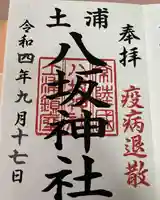 奉拝
疫病退散
土浦
八坂神社
令和四年九月十七日